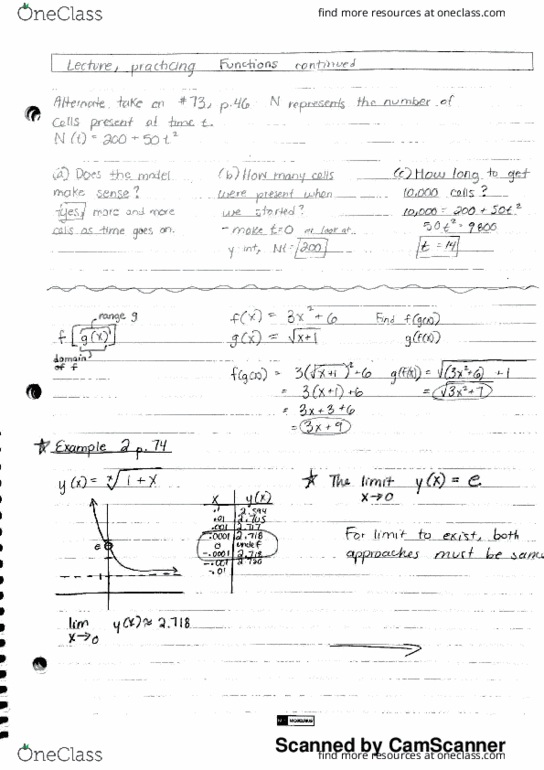 OneClass
find more resources at oneclass.com
Lecture, practicing Functions continued
Alternate take on #73, p.46 N represents the number of
cells present at time t.
N(t) = 200 + 50t²
(a) Does the model
make sense?
Yes, more and more
cells as time goes on.
(b) How many cells
were present when
we started?
- make t=0 or look at
y int, Nt = 200
(c) How long to get
10,000 cells?
10,000 = 200 + 50t²
50t² = 9800
t = 14
range g
f [g(x)]
domain
of f
f(x) = 3x² + 6 Find f(g(x))
g(x) = √x+1 g(f(x))
f(g(x)) = 3(√x+1)² + 6 g(f(x)) = √(3x²+6) + 1
= 3(x+1) + 6 = √3x²+7
= 3x + 3 + 6
= 3x + 9
★ Example 2 p. 74
y(x) = ˣ√1 + x
e
1
x y(x)
.1 2.594
.01 2.705
.001 2.717
.0001 2.718
0 undef
-.0001 2.718
-.001 2.720
-.01
★ The limit y(x) = e
x→0
For limit to exist, both
approaches must be same
lim y(x) ≈ 2.718
x→0
Scanned by CamScanner
OneClass
find more resources at oneclass.com